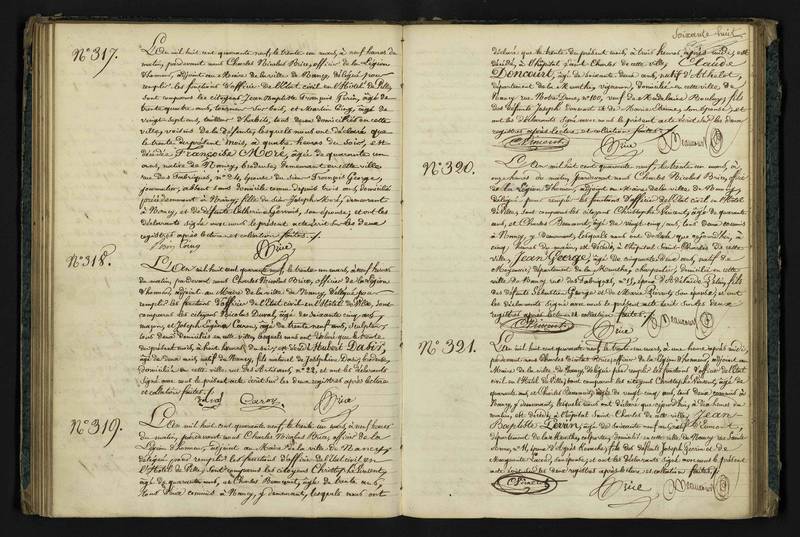 Soixante huit
N° 317.
L'An mil huit cent quarante neuf, le trente un mars, à neuf heures du
matin, pardevant nous Charles Nicolas Brice, officier de la Légion
d'honneur, adjoint au Maire de la ville de Nancy, délégué pour
remplir les fonctions d'officier de l'Etat civil en l'Hôtel de Ville,
sont comparus les citoyens Jean Baptiste François Génin, âgé de
trente quatre ans, tourneur sur bois, et Martin Cinq, âgé de
vingt sept ans, tailleur d'habits, tous deux domiciliés en cette
ville, voisins de la défunte, lesquels nous ont déclaré que
le trente du présent mois, à quatre heures du soir, est
décédée Françoise Moré, âgée de quarante un
ans, native de Nancy, brodeuse, demeurant en cette ville,
rue des Fabriques, n° 24, épouse du sieur François George,
journalier, absent sans domicile connu depuis trois ans, domicilié
précédemment à Nancy, fille du sieur Joseph Moré, demeurant
à Nancy, et de défunte Catherine Gervais, son épouse; et ont les
déclarants signé avec nous le présent acte écrit sur les deux
registres après lecture et collation faites.
Brice
N° 318.
L'An mil huit cent quarante neuf, le trente un mars, à neuf heures
du matin, pardevant nous Charles Nicolas Brice, officier de la Légion
d'honneur, adjoint au Maire de la ville de Nancy, délégué pour
remplir les fonctions d'officier de l'Etat civil en l'Hôtel de Ville, sont
comparus les citoyens Nicolas Duval, âgé de soixante cinq ans,
maçon, et Joseph Eugène Caroy, âgé de trente neuf ans, sculpteur,
tous deux domiciliés en cette ville, lesquels nous ont déclaré que le trente
du présent mois, à huit heures du soir, est décédé Hubert David,
âgé de deux ans, natif de Nancy, fils naturel de Joséphine David, brodeuse,
domiciliée en cette ville rue des Artisans, n° 22, et ont les déclarants
signé avec nous le présent acte écrit sur les deux registres après lecture
et collation faites.
Duval Caroy Brice
N° 319.
L'An mil huit cent quarante neuf, le trente un mars, à neuf heures
du matin, pardevant nous Charles Nicolas Brice, officier de la
Légion d'honneur, adjoint au Maire de la ville de Nancy,
délégué pour remplir les fonctions d'officier de l'Etat civil en
l'Hôtel de Ville, sont comparus les citoyens Christophe Vincent,
âgé de quarante ans, et Charles Beaucourt, âgé de
tous deux commis à Nancy, y demeurant, lesquels nous ont
déclaré que le trente du présent mois, à trois heures après midi, est
décédé, à l'hôpital Saint Charles de cette ville, Claude
Doncourt, âgé de soixante deux ans, natif d'
département de la Meurthe, vigneron, domicilié en cette ville, de
Nancy rue Notre Dame, n° 100, veuf de Madeleine Boulay, fils
des défunts Joseph Doncourt et de Marie Anne, son épouse; et
ont les déclarants signé avec nous le présent acte écrit sur les deux
registres après lecture et collation faites.
C. Vincent Brice Beaucourt
N° 320.
L'An mil huit cent quarante neuf, le trente un mars, à
onze heures du matin, pardevant nous Charles Nicolas Brice, officier
de la Légion d'honneur, adjoint au Maire de la ville de Nancy,
délégué pour remplir les fonctions d'officier de l'Etat civil en l'Hôtel
de Ville, sont comparus les citoyens Christophe Vincent, âgé de quarante
ans, et Charles Beaucourt, âgé de vingt cinq ans, tous deux commis
à Nancy, y demeurant, lesquels nous ont déclaré que aujourd'hui, à
cinq heures du matin, est décédé, à l'hôpital Saint Charles de cette
ville, Jean George, âgé de cinquante deux ans, natif de
département de la Meurthe, charpentier, domicilié en cette
ville de Nancy rue des Fabriques, n° 13, époux d'Adélaïde, fils
des défunts Sébastien George et de Marie, son épouse; et ont
les déclarants signé avec nous le présent acte écrit sur les deux
registres après lecture et collation faites.
C. Vincent Brice Beaucourt
N° 321.
L'An mil huit cent quarante neuf, le trente un mars, à une heure après midi,
pardevant nous Charles Nicolas Brice, officier de la Légion d'honneur, adjoint au
Maire de la ville de Nancy, délégué pour remplir les fonctions d'officier de l'Etat
civil en l'Hôtel de Ville, sont comparus les citoyens Christophe Vincent, âgé de
quarante ans, et Charles Beaucourt, âgé de vingt cinq ans, tous deux commis à
Nancy, y demeurant, lesquels nous ont déclaré que aujourd'hui, à dix heures du
matin, est décédé, à l'hôpital Saint Charles de cette ville, Jean
Baptiste Levrin, âgé de soixante neuf ans,
département de la Meurthe, domicilié en cette ville de Nancy rue Sainte
Anne, n° 11, fils des défunts Joseph et de
Marguerite, son épouse; et ont les déclarants signé avec nous le présent
acte écrit sur les deux registres après lecture et collation faites.
C. Vincent Brice Beaucourt